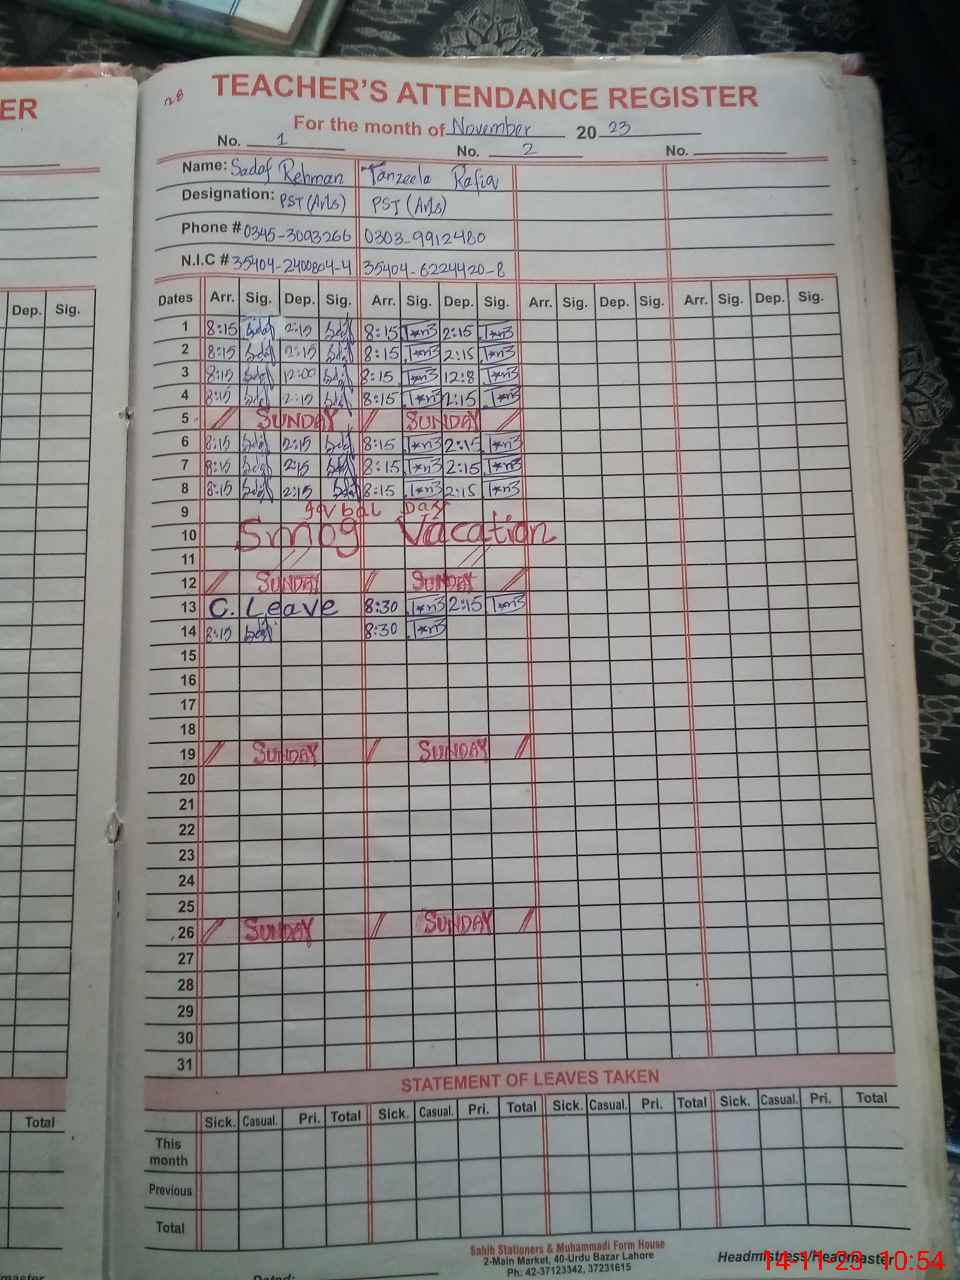 ER
28
TEACHER'S ATTENDANCE REGISTER
For the month of November 20 23
No. 1 No. 2 No.
Name: Sadaf Rehman Tanzeela Rafiq
Designation: PST (Arts) PST (Arts)
Phone # 0345-3093266 0303-9912480
N.I.C # 35404-2400804-4 35404-6224420-8
Dep. Sig. Dates Arr. Sig. Dep. Sig. Arr. Sig. Dep. Sig. Arr. Sig. Dep. Sig. Arr. Sig. Dep. Sig.
1 8:15 2:15 8:15 2:15
2 8:15 2:15 8:15 2:15
3 8:15 12:00 8:15 12:8
4 8:15 2:15 8:15 2:15
5 SUNDAY SUNDAY
6 8:15 2:15 8:15 2:15
7 8:15 2:15 8:15 2:15
8 8:15 2:15 8:15 2:15
9 Iqbal Day
10 Smog Vacation
11
12 SUNDAY SUNDAY
13 C. Leave 8:30 2:15
14 8:15 8:30
15
16
17
18
19 SUNDAY SUNDAY
20
21
22
23
24
25
26 SUNDAY SUNDAY
27
28
29
30
31
STATEMENT OF LEAVES TAKEN
Total Sick. Casual. Pri. Total Sick. Casual. Pri. Total Sick. Casual. Pri. Total Sick. Casual. Pri. Total
This
month
Previous
Total
Sahib Stationers & Muhammadi Form House
2-Main Market, 40-Urdu Bazar Lahore
Ph: 42-37123342, 37231615
Headmistress/Headmaster
master
Dated:
14-11-23 10:54